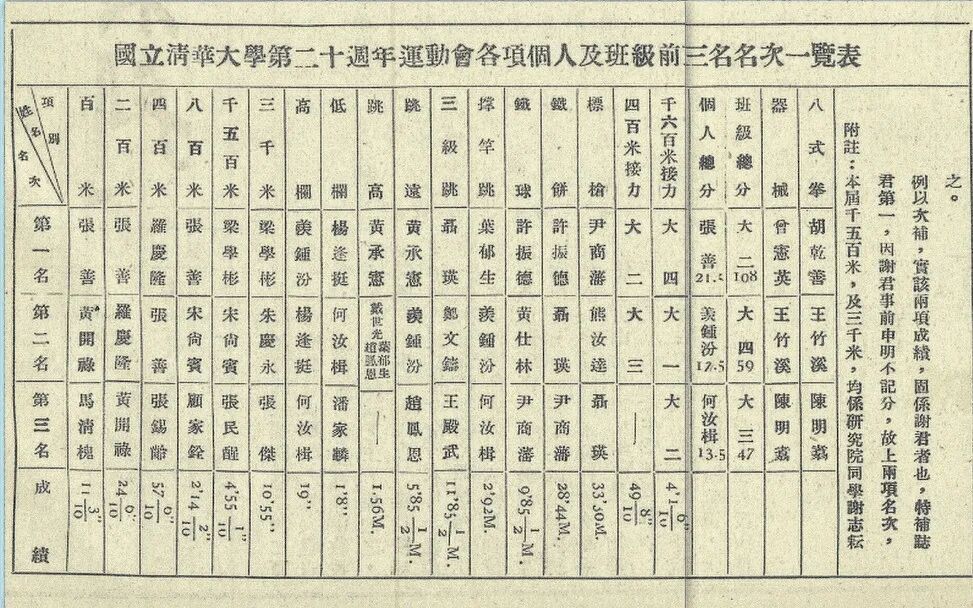 國立清華大學第二十週年運動會各項個人及班級前三名名次一覽表
項別 姓名 名次 第一名 第二名 第三名 成績
百米 張善 黃開祿 馬清槐 11 3"/10
二百米 張善 羅慶隆 黃開祿 24 6"/10
四百米 羅慶隆 張善 張錫齡 57 6"/10
八百米 張善 宋尙賓 顧家銓 2'14 2"/10
千五百米 梁學彬 宋尙賓 張民醒 4'55 1"/10
三千米 梁學彬 朱慶永 張傑 10'55"
高欄 羨鍾汾 楊逢挺 何汝楫 19"
低欄 楊逢挺 何汝楫 潘家麟 1'8"
跳高 黃承憲 戴世光 葉郁生 趙鳳恩 — 1.56M.
跳遠 黃承憲 羨鍾汾 趙鳳恩 5'85 1/2 M.
三級跳 聶瑛 鄭文 王殿武 11'85 1/2 M.
撐竿跳 葉郁生 羨鍾汾 何汝楫 2'92M.
鐵球 許振德 黃仕林 尹商藩 9'85 1/2 M.
鐵餅 許振德 聶瑛 尹商藩 28'44M.
標槍 尹商藩 熊汝達 聶瑛 33'30M.
四百米接力 大二 大三 — 49 8"/10
千六百米接力 大四 大一 大二 4'1 6"/10
個人總分 張善 21.5 羨鍾汾 17.5 何汝楫 13.5
班級總分 大二 108 大四 59 大三 47
器械 曾憲英 王竹溪 陳明嘉
八式拳 胡乾善 王竹溪 陳明嘉
附註：本屆千五百米，及三千米，均係研究院同學謝志耘
君第一，因謝君事前申明不記分，故上兩項名次，
例以次補，實該兩項成績，固係謝君者也，特補誌
之。